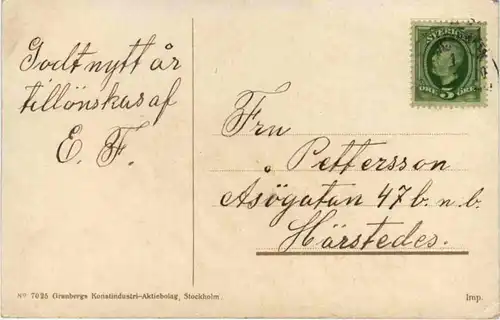 Godt nytt år
tillönskas af
E. F.
SVERIGE
ÖRE 5 ÖRE
Fru
Pettersson
Åsögatan 47 b. n. b.
Härstedes.
No 7025 Granbergs Konstindustri-Aktiebolag, Stockholm.
Imp.